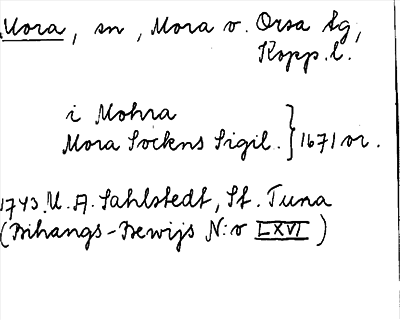 Mora, sn, Mora o. Orsa tg,
Kopp. l.
i Mohra
Mora Sockns Sigil. } 1671 or.
1743. U. A. Sahlstedt, St. Tuna
(Bihangs-Bewijs N:o LXVI)